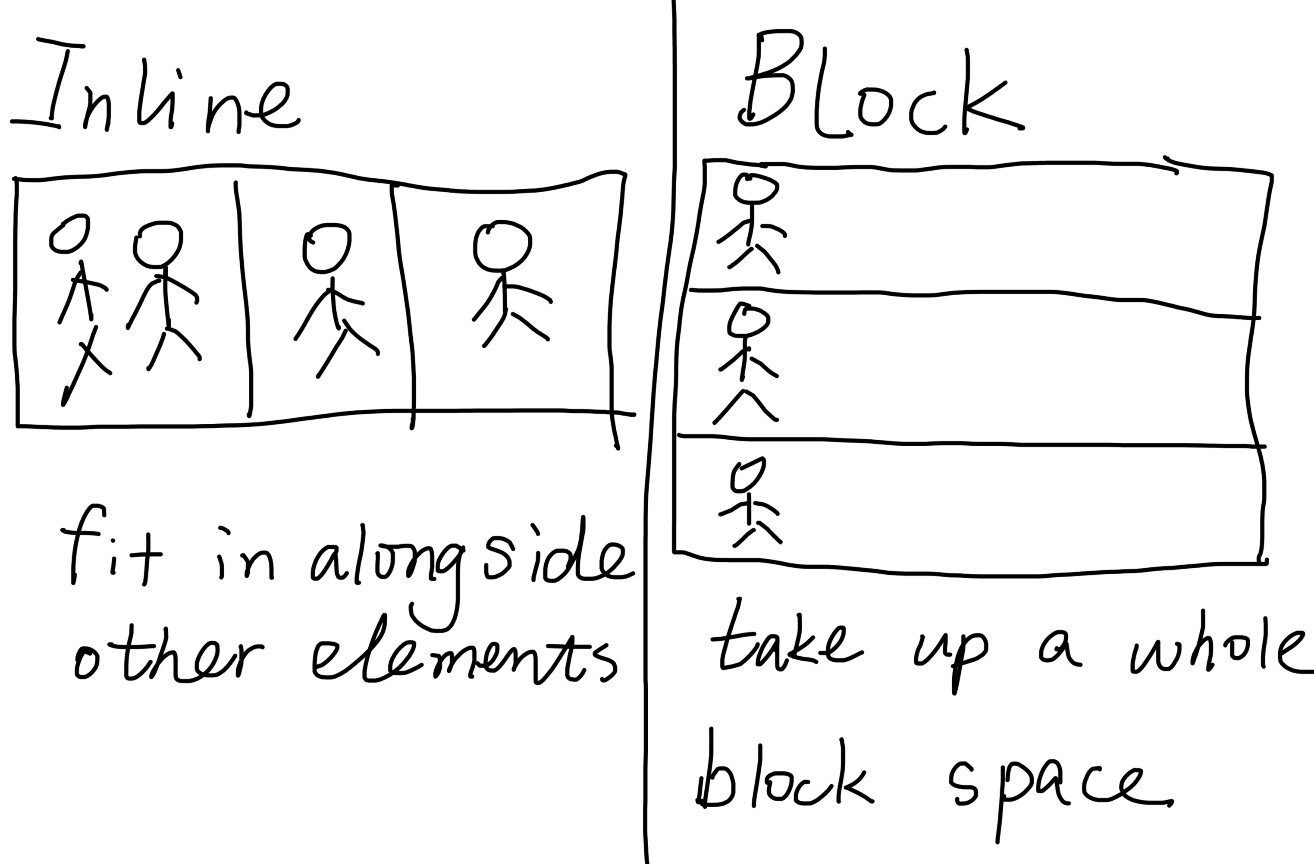 Inline
fit in alongside
other elements
Block
take up a whole
block space